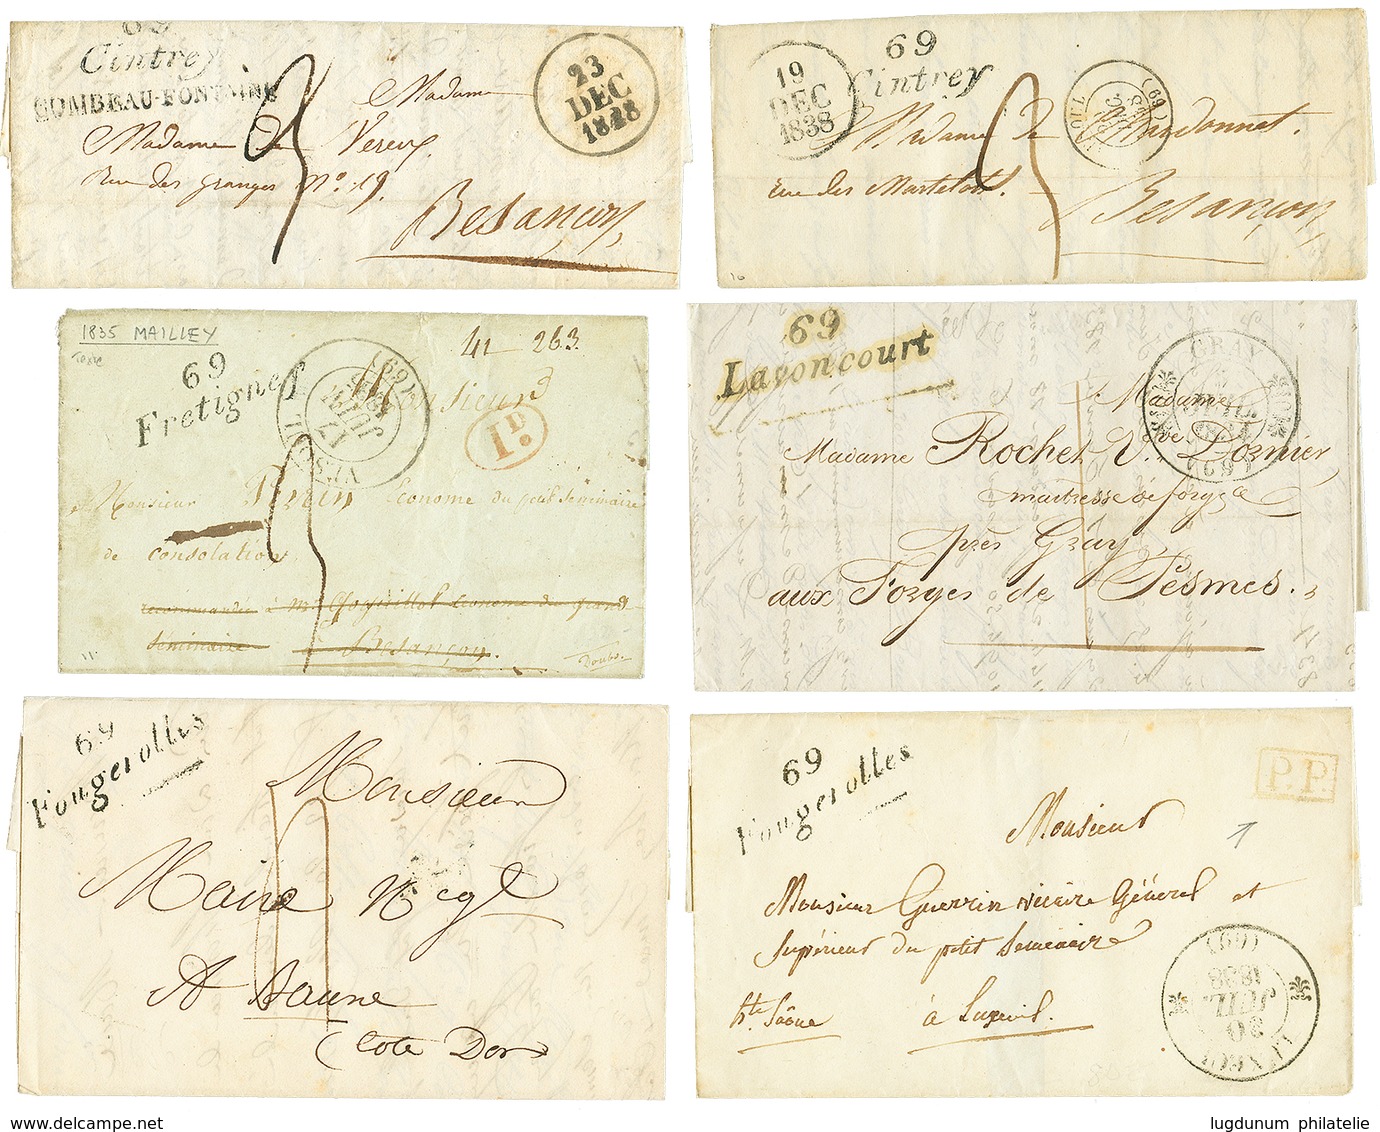 69
Cintrey
COMBEAU-FONTAINE
23
DEC
1828
Madame
Madame de
Rue des Granges N° 19.
Besançon
19
DEC
1838
69
Cintrey
(69)
Madame de
rue des Martelots.
Besançon
1835 MAILLEY
Texte
69
Fretigney
(69)
17
JUIL
1835
VESOUL
41 263
Monsieur
1D.
Monsieur Perrin Econome du petit Séminaire
de consolation
recommandée à Mr
Econome du grand
Séminaire
à Besançon
Doubs
69
Lavoncourt
GRAY
(69)
Madame
Madame Rochet Vve Dornier
maitresse de forges
près Gray
aux Forges de Pesmes.
69
Fougerolles
Monsieur
Maire Negt
A Baune
(Cote Dor
69
Fougerolles
P.P.
Monsieur
Monsieur Guerrin vicaire Général et
Supérieur du petit Seminaire
hte Saône
à Luxeuil.
(69)
20
JUIL.
1838
LUXEUIL
lugdunum philatelie
www.delcampe.net